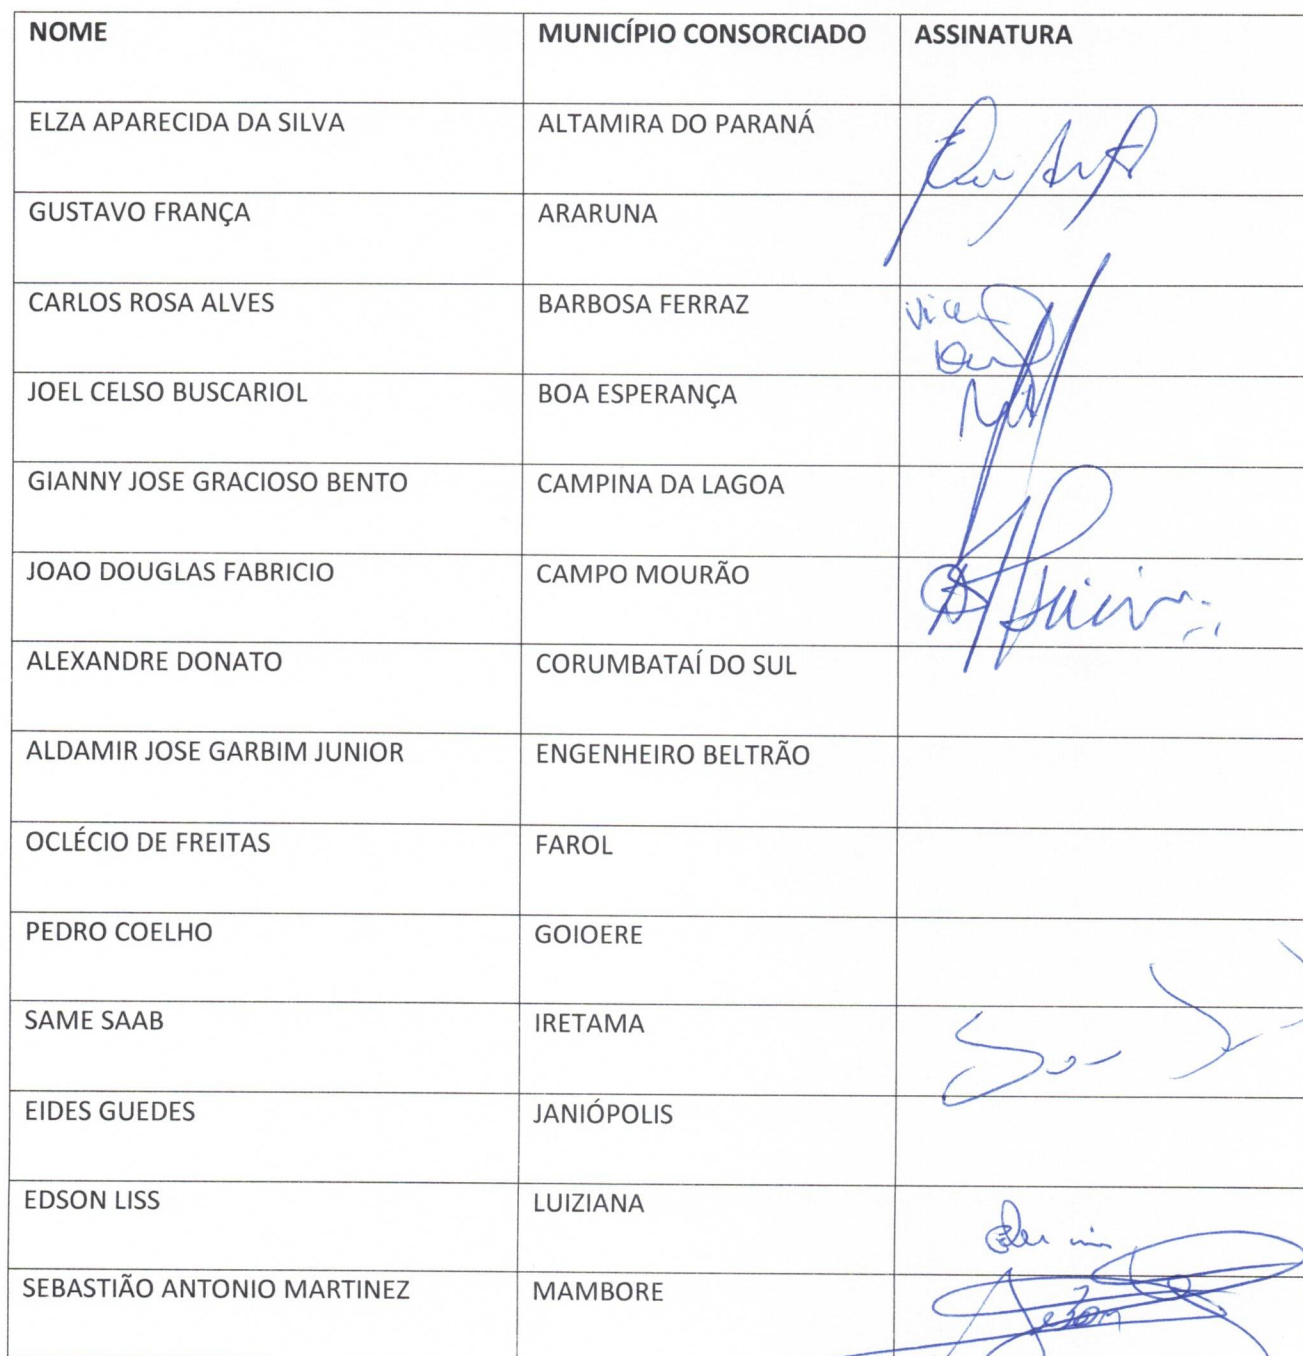 NOME MUNICÍPIO CONSORCIADO ASSINATURA
ELZA APARECIDA DA SILVA ALTAMIRA DO PARANÁ
GUSTAVO FRANÇA ARARUNA
CARLOS ROSA ALVES BARBOSA FERRAZ
JOEL CELSO BUSCARIOL BOA ESPERANÇA
GIANNY JOSE GRACIOSO BENTO CAMPINA DA LAGOA
JOAO DOUGLAS FABRICIO CAMPO MOURÃO
ALEXANDRE DONATO CORUMBATAÍ DO SUL
ALDAMIR JOSE GARBIM JUNIOR ENGENHEIRO BELTRÃO
OCLÉCIO DE FREITAS FAROL
PEDRO COELHO GOIOERE
SAME SAAB IRETAMA
EIDES GUEDES JANIÓPOLIS
EDSON LISS LUIZIANA
SEBASTIÃO ANTONIO MARTINEZ MAMBORE